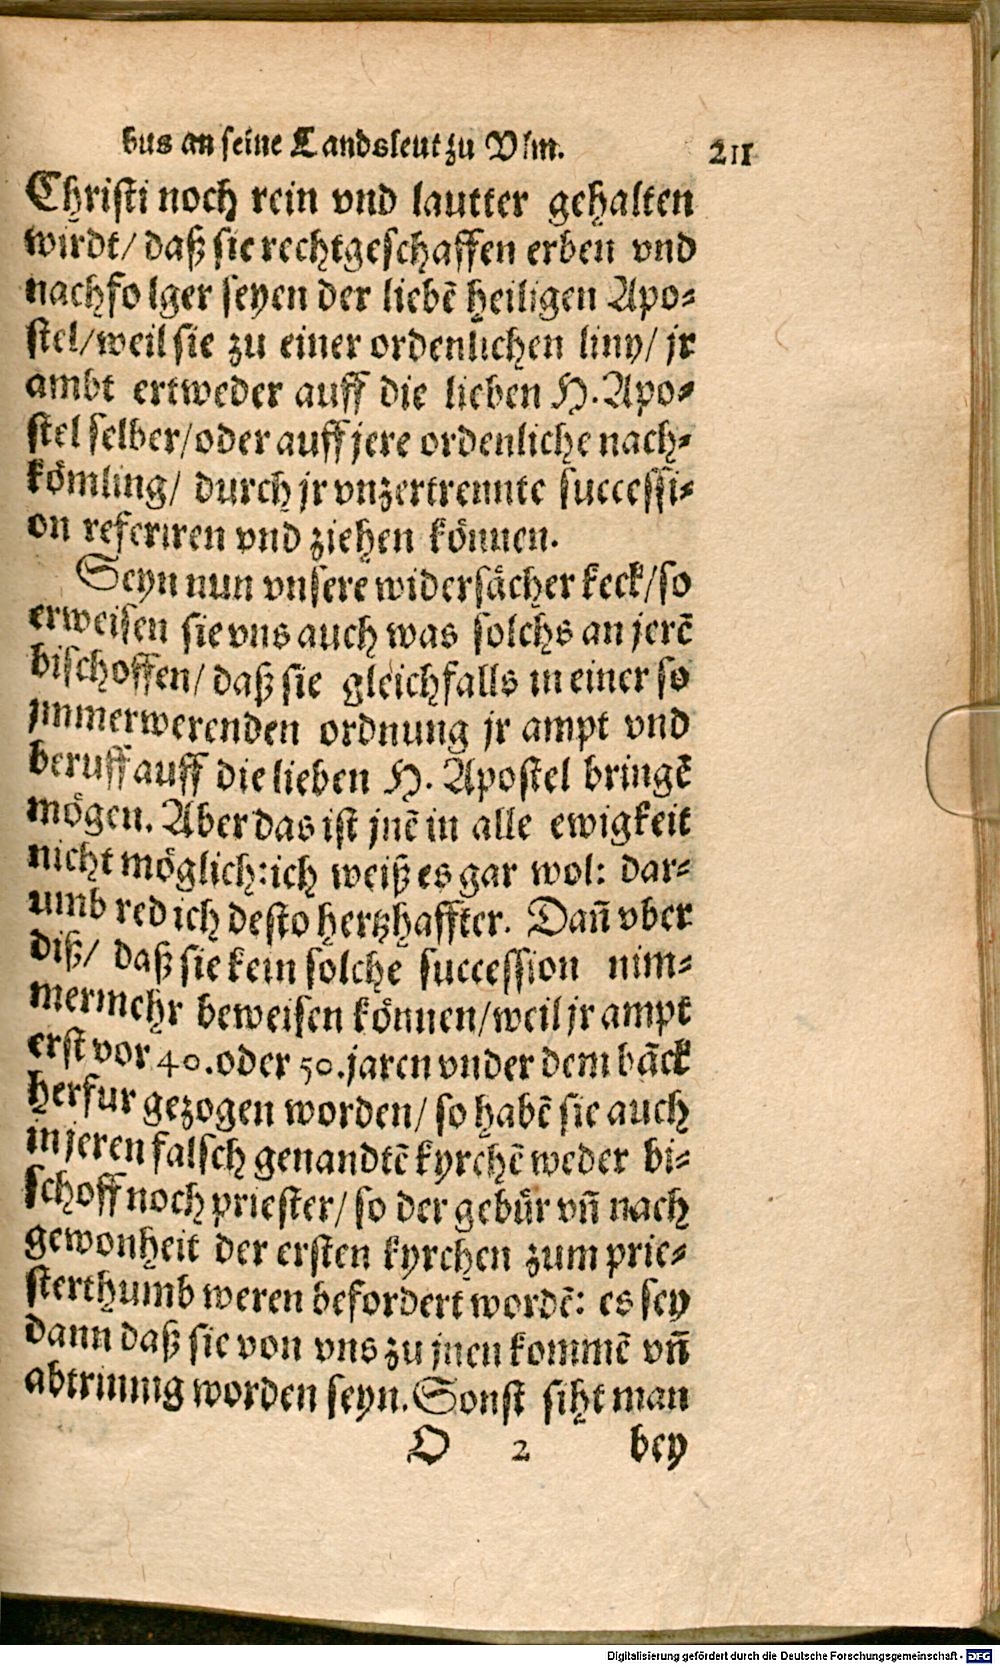 bus an seine Landsleut zu Vlm. 211
Christi noch rein vnd lautter gehalten
wirdt/ daß sie rechtgeschaffen erben vnd
nachfolger seyen der liebē heiligen Apo⸗
stel/weil sie zu einer ordenlichen liny/ jr
ambt ertweder auff die lieben H. Apo⸗
stel selber/oder auff jere ordenliche nach⸗
kömling/ durch jr vnzertrennte successi⸗
on referiren vnd ziehen können.
Seyn nun vnsere widersächer keck/so
erweisen sie vns auch was solchs an jerē
bischoffen/ daß sie gleichfalls in einer so
jmmerwerenden ordnung jr ampt vnd
beruff auff die lieben H. Apostel bringē
mögen. Aber das ist jnē in alle ewigkeit
nicht möglich: ich weiß es gar wol: dar⸗
umb red ich desto hertzhaffter. Dañ vber
diß/ daß sie kein solche succession nim⸗
mermehr beweisen können/weil jr ampt
erst vor 40. oder 50. jaren vnder dem bāck
herfur gezogen worden/ so habē sie auch
in jeren falsch genandtē kyrchē weder bi⸗
schoff noch priester/ so der gebür vñ nach
gewonheit der ersten kyrchen zum prie⸗
sterthumb weren befordert wordē: es sey
dann daß sie von vns zu jnen kommē vñ
abtrinnig worden seyn. Sonst siht man
O 2 bey
Digitalisierung gefördert durch die Deutsche Forschungsgemeinschaft - DFG